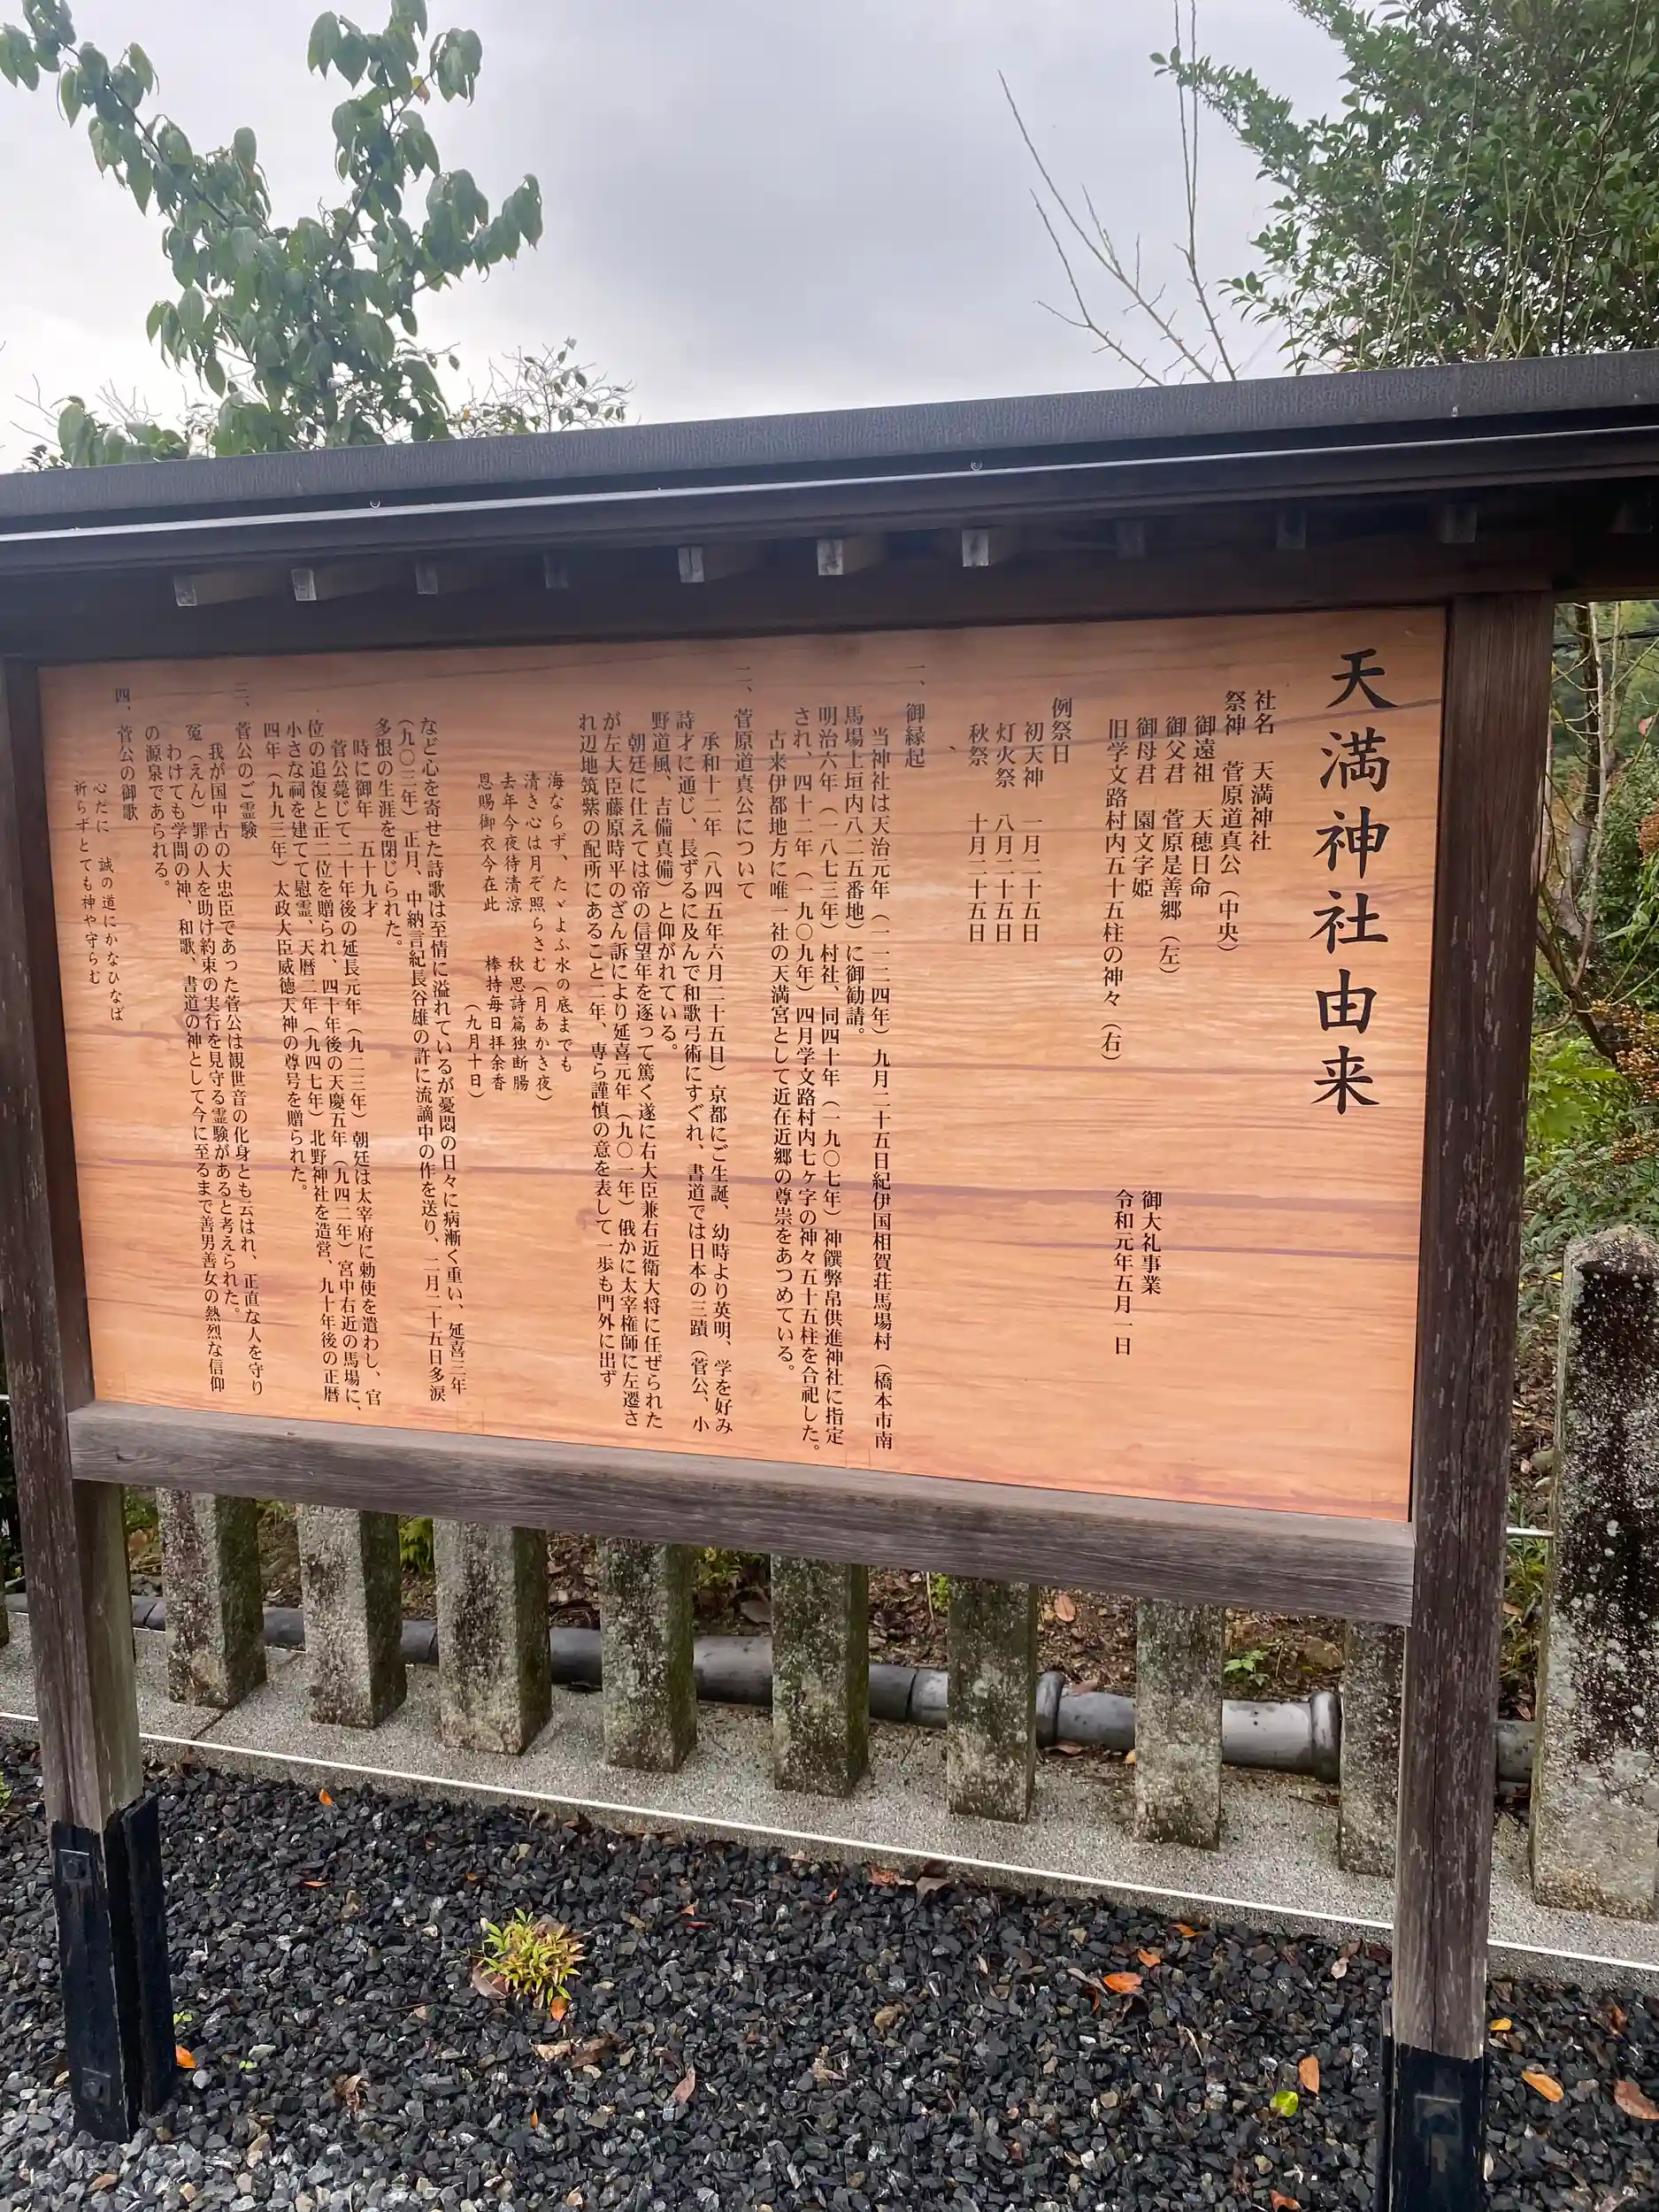 天満神社由来
御大礼事業
令和元年五月一日
社名　天満神社
祭神　菅原道真公（中央）
御遠祖　天穂日命
御父君　菅原是善郷（左）
御母君　園文字姫
旧学文路村内五十五柱の神々（右）
例祭日
初天神　一月二十五日
灯火祭　八月二十五日
秋祭　十月二十五日
、
一、御縁起
当神社は天治元年（一一二四年）九月二十五日紀伊国相賀荘馬場村（橋本市南
馬場上垣内八二五番地）に御勧請。
明治六年（一八七三年）村社、同四十年（一九〇七年）神饌弊帛供進神社に指定
され、四十二年（一九〇九年）四月学文路村内七ヶ字の神々五十五柱を合祀した。
古来伊都地方に唯一社の天満宮として近在近郷の尊崇をあつめている。
二、菅原道真公について
承和十二年（八四五年六月二十五日）京都にご生誕、幼時より英明、学を好み
詩才に通じ、長ずるに及んで和歌弓術にすぐれ、書道では日本の三蹟（菅公、小
野道風、吉備真備）と仰がれている。
朝廷に仕えては帝の信望年を逐って篤く遂に右大臣兼右近衛大将に任ぜられた
が左大臣藤原時平のざん訴により延喜元年（九〇一年）俄かに太宰権師に左遷さ
れ辺地筑紫の配所にあること二年、専ら謹慎の意を表して一歩も門外に出ず
海ならず、たゞよふ水の底までも
清き心は月ぞ照らさむ（月あかき夜）
去年今夜待清涼　秋思詩篇独断腸
恩賜御衣今在此　棒持毎日拝余香
（九月十日）
など心を寄せた詩歌は至情に溢れているが憂悶の日々に病漸く重い、延喜三年
（九〇三年）正月、中納言紀長谷雄の許に流謫中の作を送り、二月二十五日多涙
多恨の生涯を閉じられた。
時に御年　五十九才
菅公薨じて二十年後の延長元年（九二三年）朝廷は太宰府に勅使を遣わし、官
位の追復と正二位を贈られ、四十年後の天慶五年（九四二年）宮中右近の馬場に、
小さな祠を建てて慰霊、天暦二年（九四七年）北野神社を造営、九十年後の正暦
四年（九九三年）太政大臣威徳天神の尊号を贈られた。
三、菅公のご霊験
我が国中古の大忠臣であった菅公は観世音の化身とも云はれ、正直な人を守り
冤（えん）罪の人を助け約束の実行を見守る霊験があると考えられた。
わけても学問の神、和歌、書道の神として今に至るまで善男善女の熱烈な信仰
の源泉であられる。
四、菅公の御歌
心だに　誠の道にかなひなば
祈らずとても神や守らむ